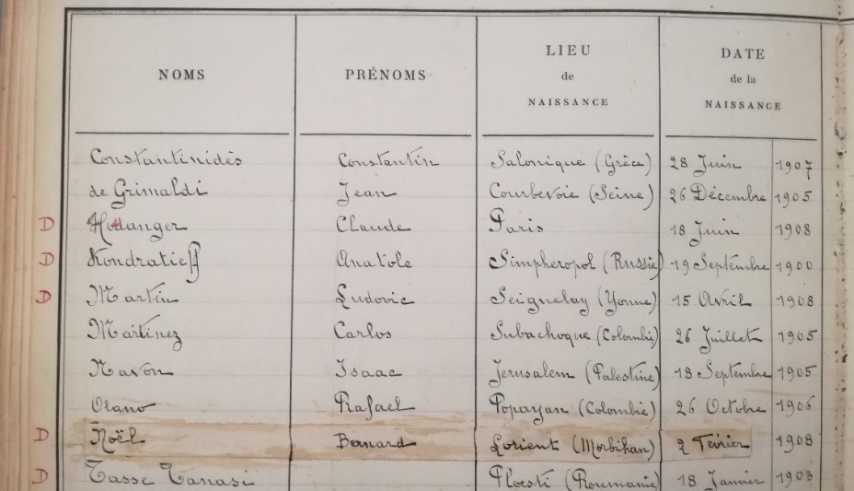 NOMS PRÉNOMS LIEU de NAISSANCE DATE de la NAISSANCE
Constantinidès Constantin Salonique (Grèce) 28 Juin 1907
de Grimaldi Jean Courbevoie (Seine) 26 Décembre 1905
D Claude Paris 18 Juin 1908
D Kondratieff Anatole Simpheropol (Russie) 19 Septembre 1900
D Martin Ludovic Seignelay (Yonne) 15 Avril 1908
Martinez Carlos Subachoque (Colombie) 26 Juillet 1905
Navon Isaac Jerusalem (Palestine) 18 Septembre 1905
Olano Rafael Popayan (Colombie) 26 Octobre 1906
D Noël Bernard Lorient (Morbihan) 2 Février 1908
D Tasse Tanasi Ploesti (Roumanie) 18 Janvier